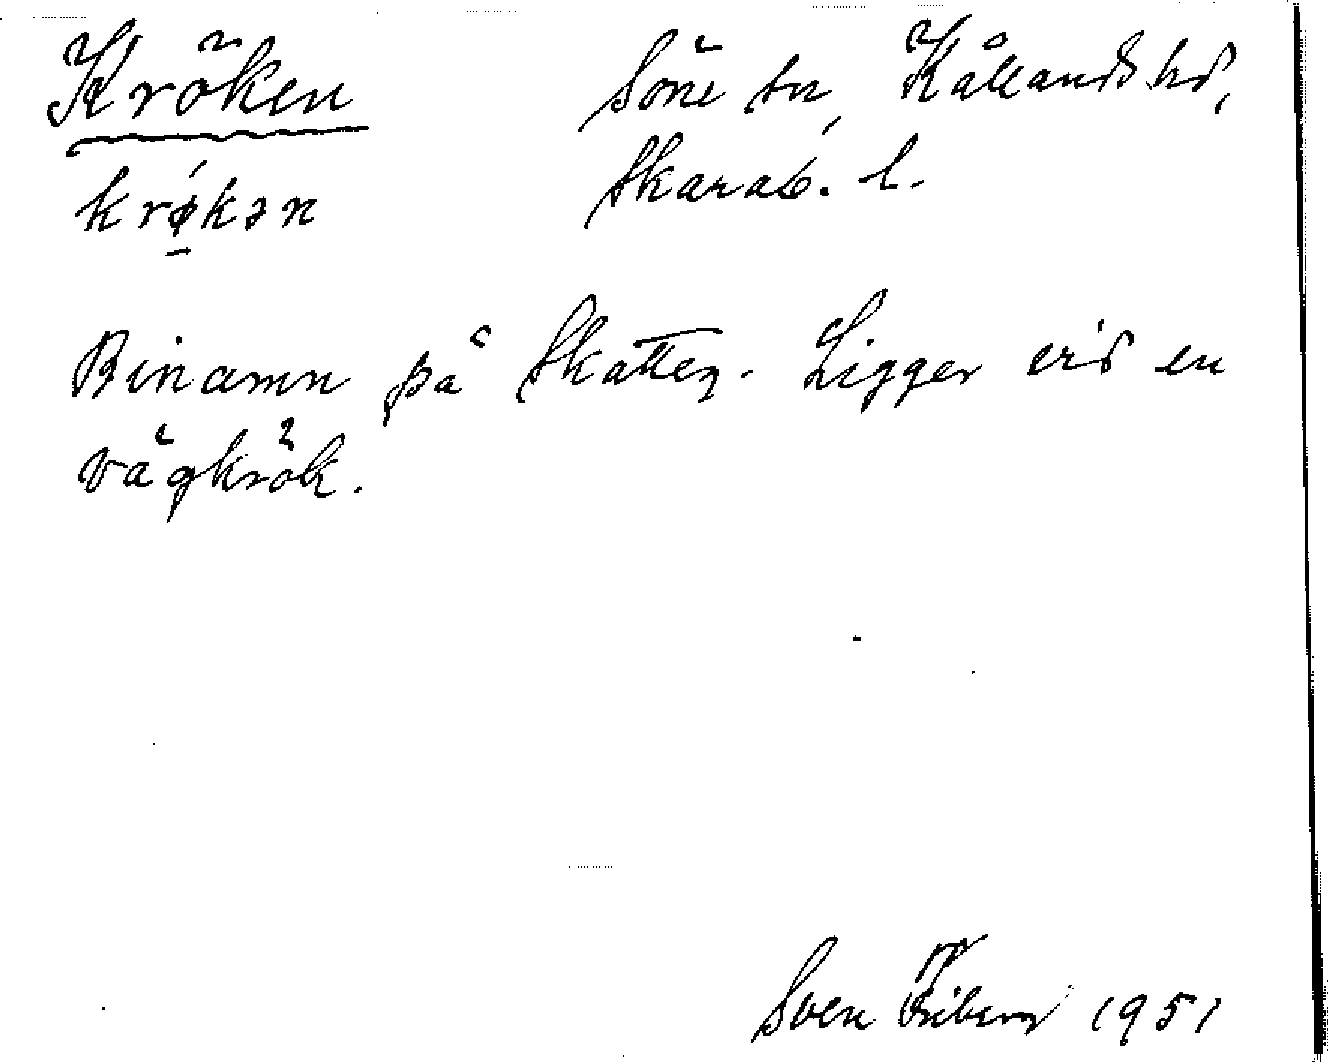 Kröken Söne sn, Kållands hd,
krǿ̠kən Skarab. l.
Binamn på Skatten. Ligger vid en
vägkrök.
Sven Friberg 1951